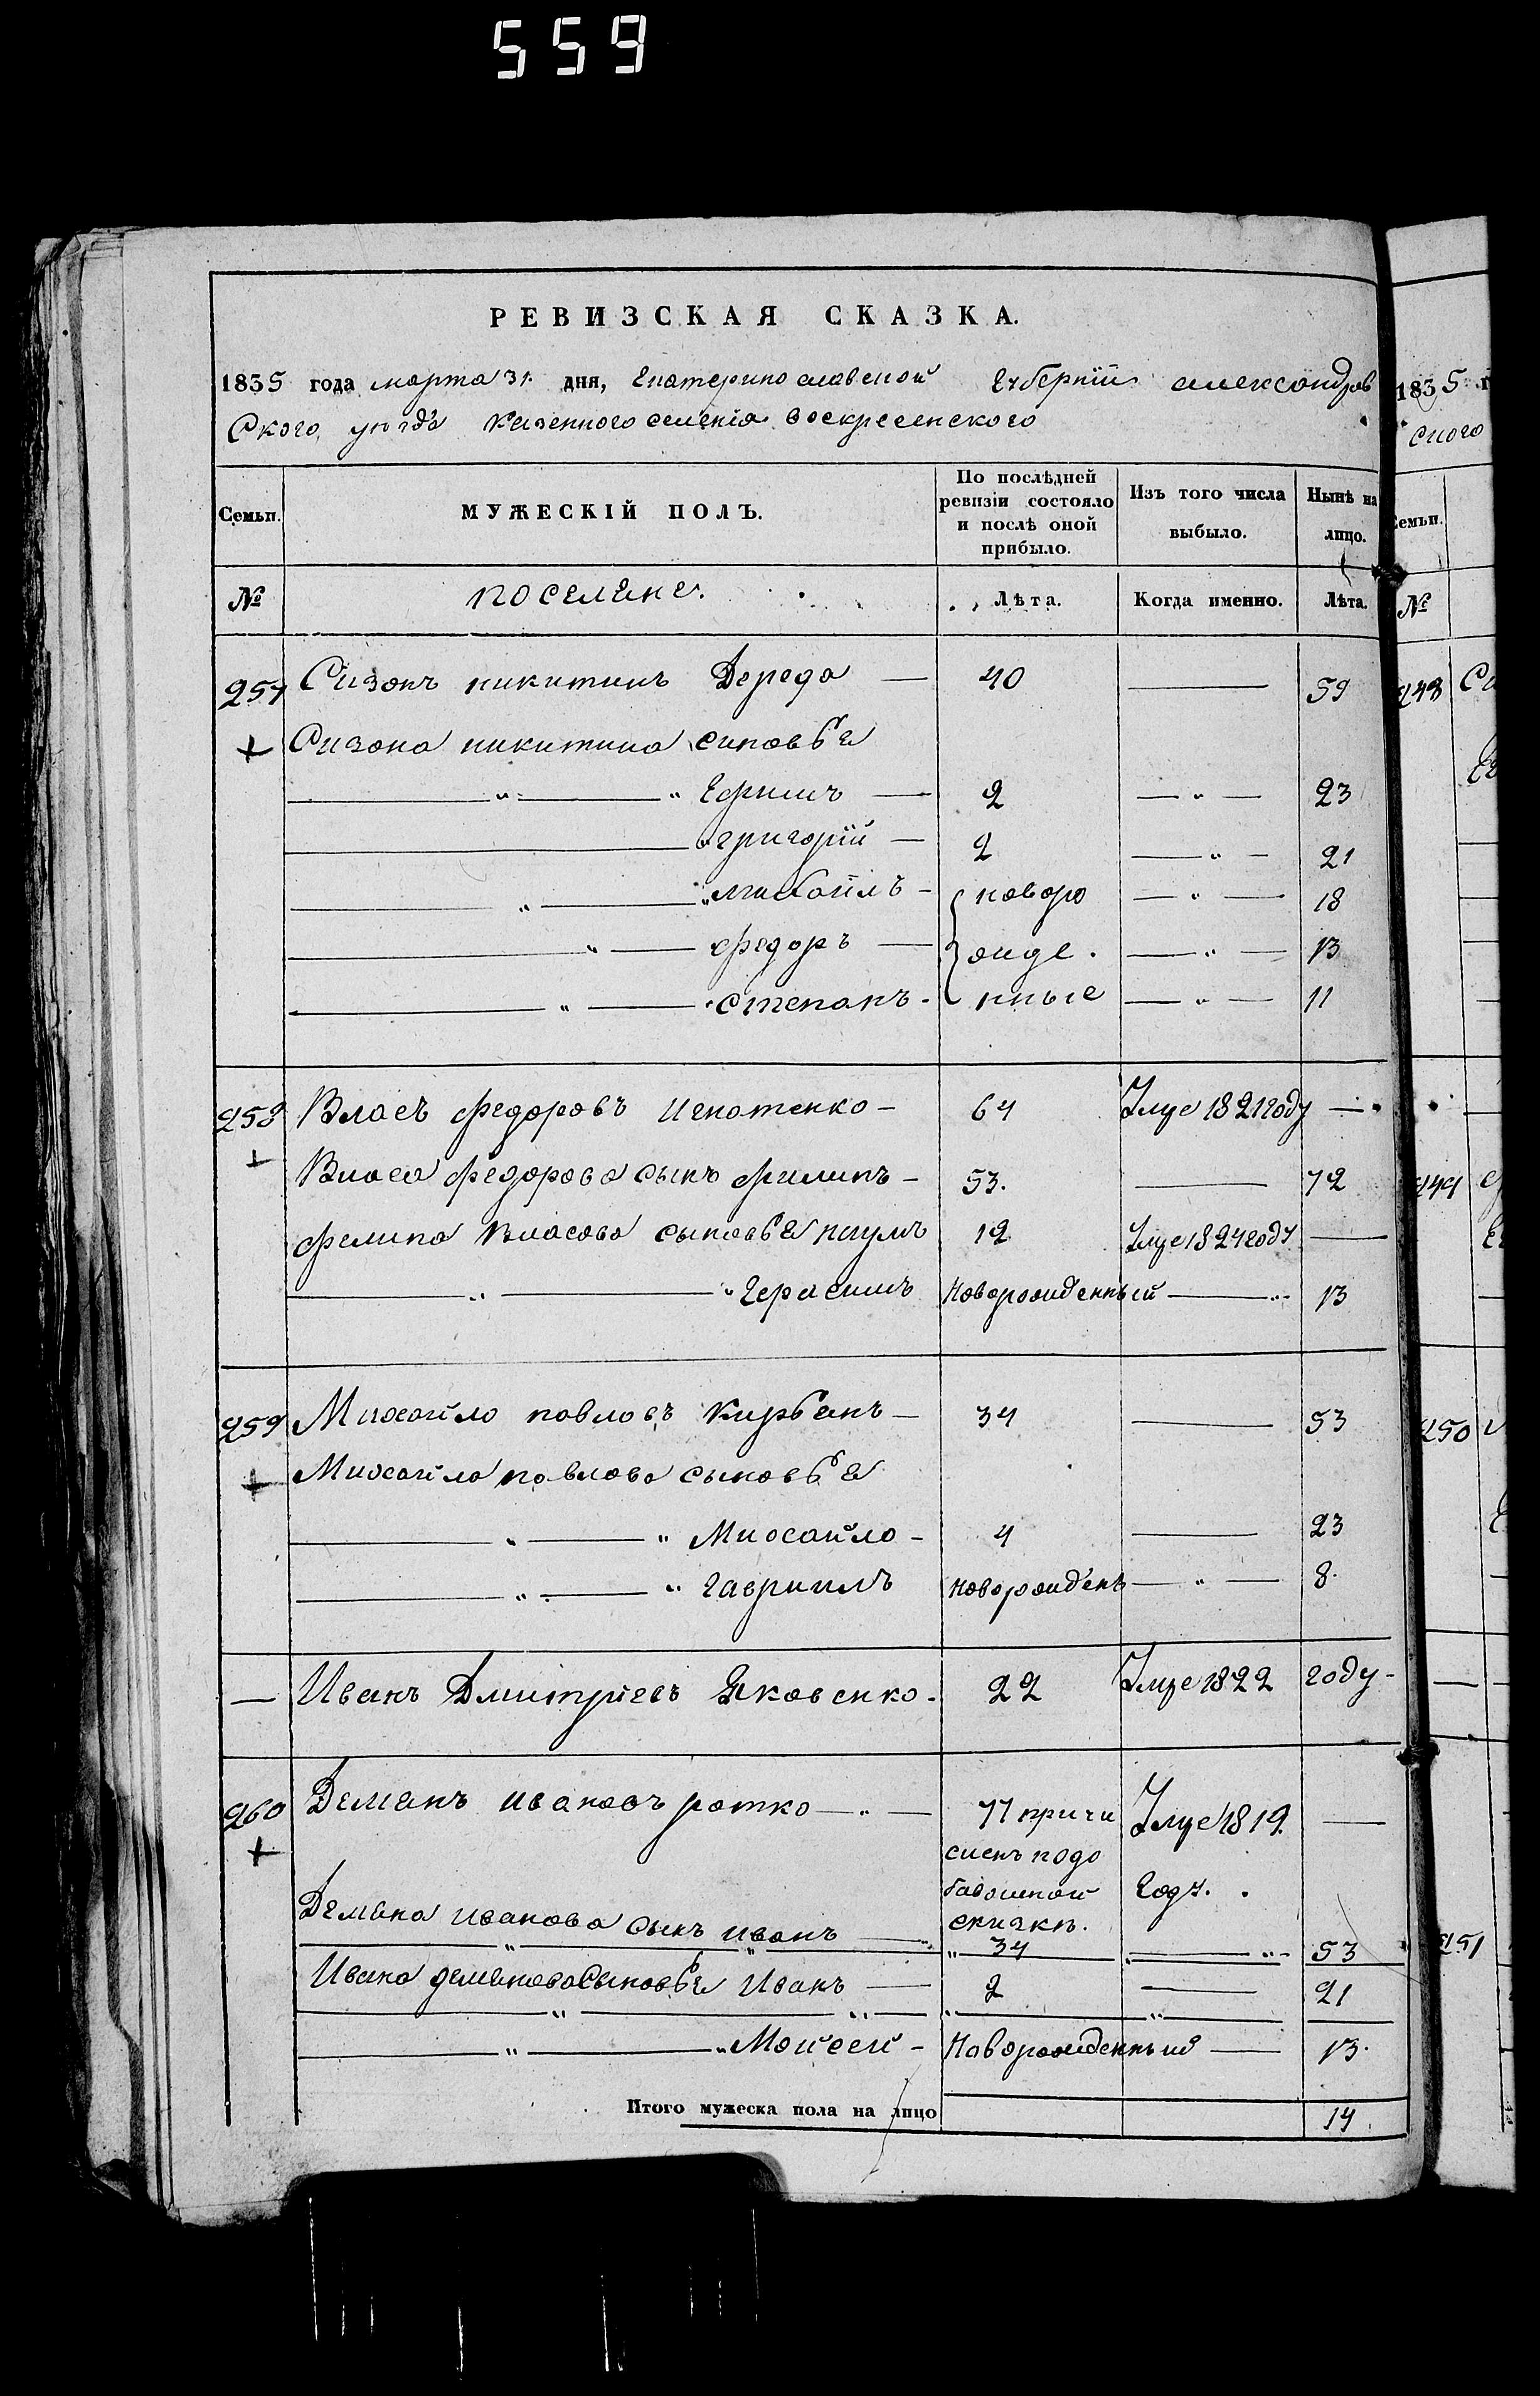 559
РЕВИЗСКАЯ СКАЗКА.
1835 года марта 31. дня, Екатеринославской Губерніи александров
ского уѣзда казенного селенія воскресенского
Семьи. МУЖЕСКІЙ ПОЛЪ. По послѣдней ревизіи состояло и послѣ оной прибыло. Изъ того числа выбыло. Нынѣ на лицо.
№ поселяне. Лѣта. Когда именно. Лѣта.
257 Сизонъ никитинъ Дереда — 40 — 59
+ Сизона никитина синовья
" " Ефимъ — 2 — " — 23
" григорій — 2 — " — 21
" " михайлъ - новоро — " — 18
" федоръ — жде. — " — 13
" степанъ - нные — " — 11
258 Власъ федоровъ игнатенко — 64 Умре 1821 году —
+ Власа федорова сынъ филипъ — 53. — 72
филипа власова сыновья наумъ 12 Умре 1824 году —
" " герасимъ новорожденный — " 13
259 Михайло павловъ кирбянъ — 34 — 53
+ Михайла павлова сыновья
" " Михайло - 4 — 23
" " гавриилъ новорожденъ — " — 8.
— Иванъ Дмитріевъ Яковенко. 22 Умре 1822 году -
260 Демянъ ивановъ ротко — " — 77 причи Умре 1819. —
+ сленъ подо
бавошной году.
сказкѣ.
Демяна иванова сынъ иванъ — 34 — " - 53
Ивана демянова сыновья Иванъ — 2 — 21
" " Мойсей - Новорожденный — 13.
Итого мужеска пола на лицо 14
1835 г
ского
Семьи.
№
248
249
250
251